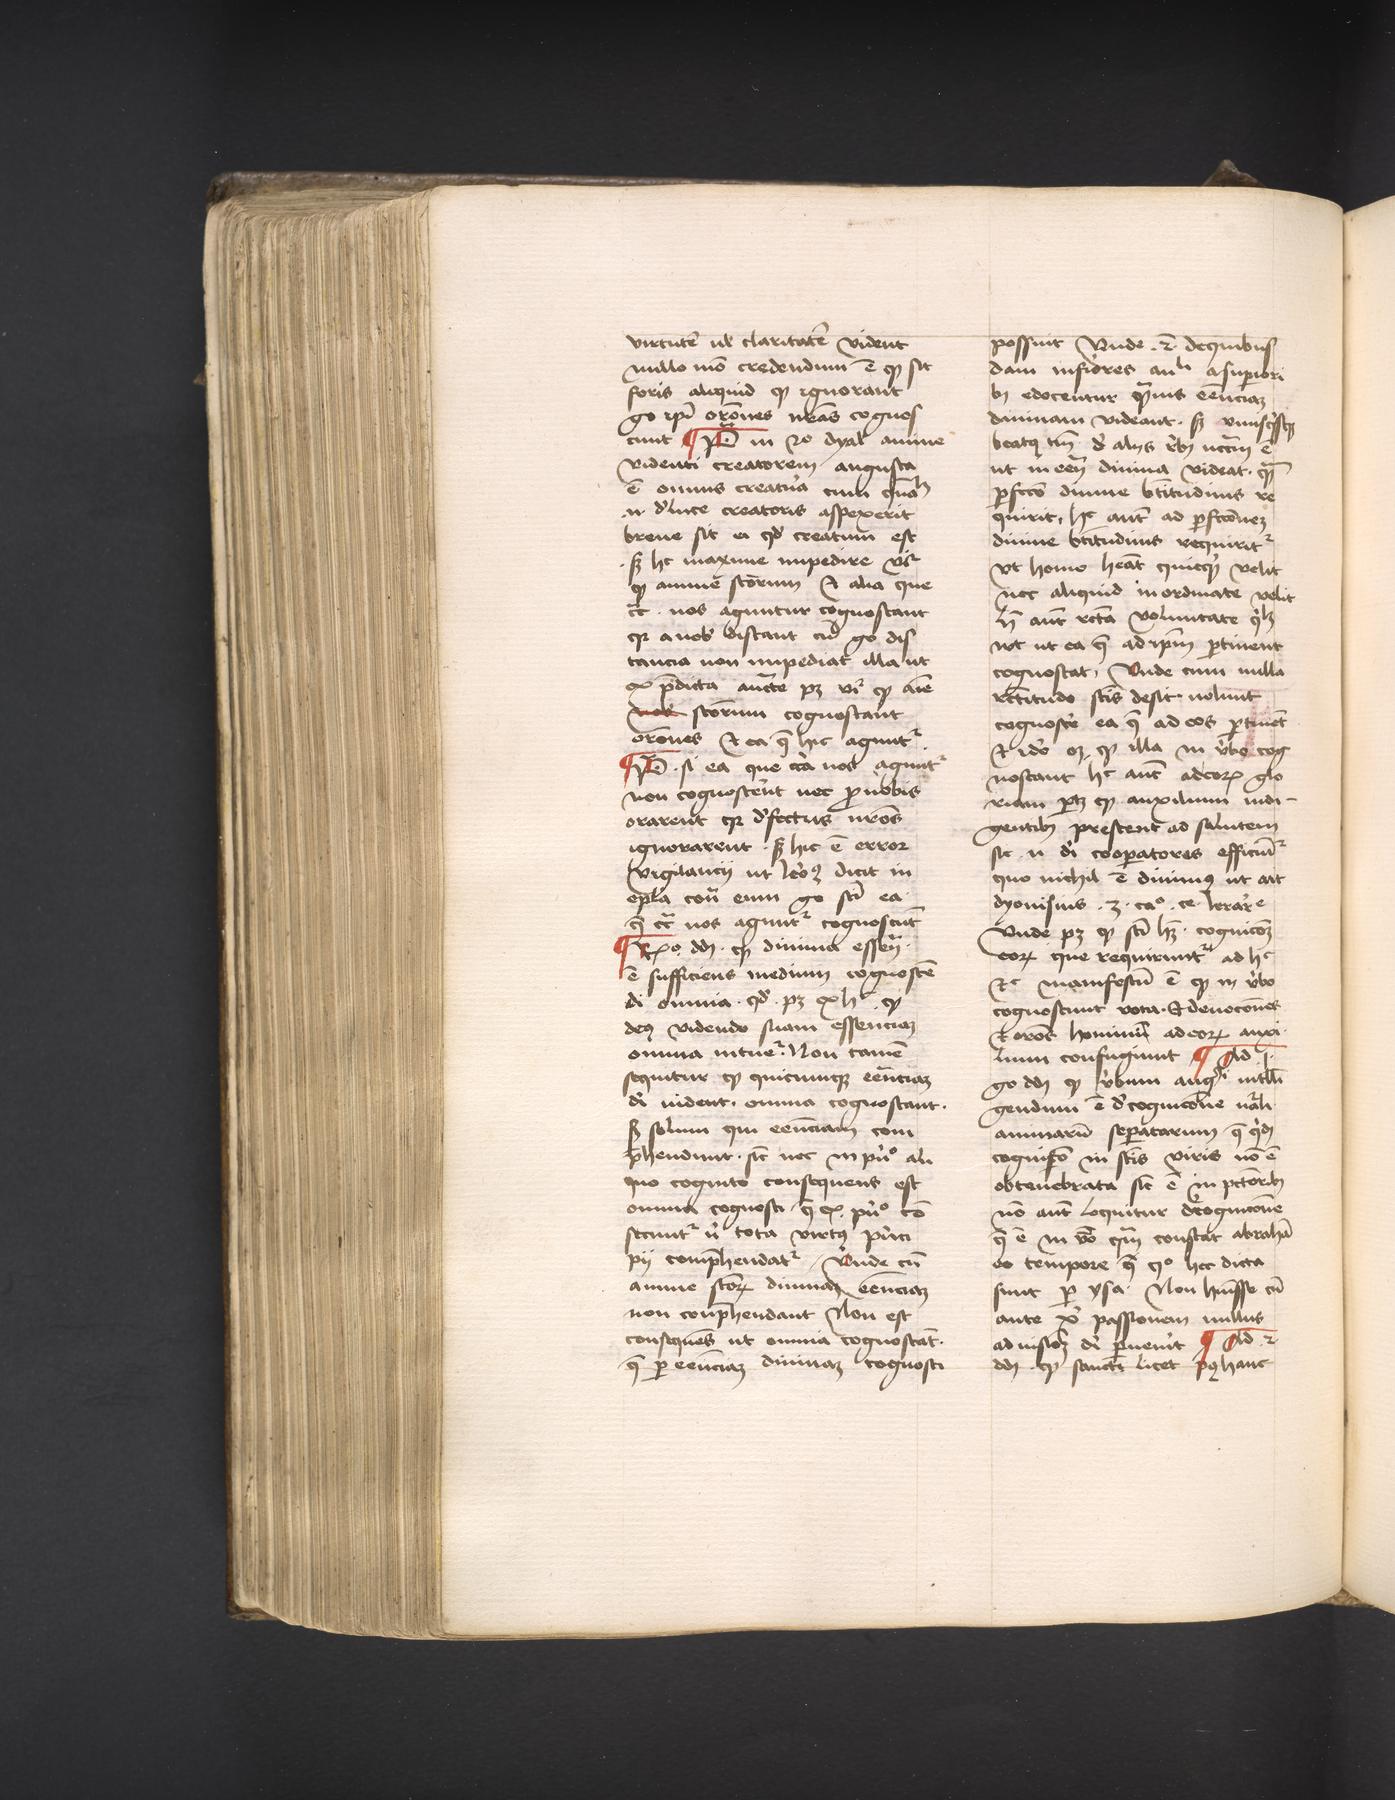 virtutē ul' claritatē vident
nullo mō credendum ē qp sit
foris aliquid qp ignorant
go ipī orōnes nrās cognos
cunt ¶ Pᵃ in 2o dyal' anime
videnti creatorem angusta
ē omnis creatura cum
n̄ d' luce creatoris aspexerit
breue fit ei qd' creatum est
sꝫ hc maxime impedire vr̄
qp anime scōrum et alia que
cc̄ nos aguntur cognoscant
qr a nob' distant cū go dis
tancia non impediat illa ut
ex p̄dicta aucte pꝫ vr̄ qp aīe
scōrum cognoscant
orōnes et ea q̄ hic agunt᷑
¶ Pᵃ si ea que circa nos agunt᷑
non cognoscerēt nec pro nobis
orarent qr d'fectus nrōs
ignorarent sꝫ hic ē error
vigilancij ut Iero dicit in
epl'a cont̄ eum go scī ea
q̄ cc̄ nos agunt᷑ cognoscūt
¶ Rx° dd. qp diuina essen̄
ē sufficiens medium cognoscē
di omnia qd' pꝫ ex hc qp
deus videndo suam essenciaꝫ
omnia intue᷑ Non tamē
sequitur qp quicumqꝫ eēnciaꝫ
dī uident omnia cognoscant
sꝫ solum qui eēnciam com
p̄hendunt sic nec in prī° ali
quo cognito consequens est
omnia cognosci q̄ ex prī° co
secunt᷑ n̄ tota virtus princi
pij comp̄hendat᷑ Unde cū
anime scōꝝ diuinaꝫ eēnciaꝫ
non conp̄hendant Non est
consequēs ut omnia cognoscāt
q̄ per eēnciaꝫ diuinaꝫ cognosci
possunt Unde 2 de quibus
dam inferiores anl'i a superiori
bꝫ edocentur q̄uis eēnciaꝫ
diuinam videant sꝫ vnusq'sqꝫ
beatus tm̄ d' alijs rebꝫ nccm̄ ē
ut in eēn̄ diuina videat qm̄
perfcō diuine btitudinis re
quirit, hc aut̄ ad perfcōneꝫ
diuine btitudinis requirit᷑
Ut homo heāt quicqd' velit
nec aliquid inordinate velit
hᵒ aut̄ rcta voluntate qlꝫ
ut ea q̄ ad ipm̄ pertinent
cognoscat, Unde cum nulla
rctitudo scīs desit uolunt
cognosc'e ea q̄ ad eos pertinēt
Et idō oꝫ qp illa in v'bo cog
noscant hc aut̄ ad eoꝝ glo
riam ptꝫ qp auxilium indi-
gentibꝫ prestent ad salutem
sic n dī cooperatores efficiunt᷑
quo nichil ē diuinius ut ait
dyonisius . 3 . ca° . ce . Ierar᷑e
Unde pꝫ qp scī hn̄t cognicōꝫ
eoꝝ que requirunt᷑ ad hc
Et manifestū ē qp in v'bo
cognoscunt vota et deuocōnes
et orōēs hominū ad eoꝝ auxi
lium confugiunt ¶ Ad . 1 .
go dd. qp v'bum augⁱ intelli
gendum ē d' cognicōne nālī
animarū separatarum q̄ qdꝫ
cognicō in scīs viris nō ē
obtenebrata sic ē in pctōribꝫ
nō aut̄ loquitur d' cognicōne
q̄ ē in v'bo qm̄ constat abrahā
eo tempore q̄ q° hec dicta
sunt per ysa Non huisse cū
ante xī passionem nullus
ad uisioꝫ dī peruenit ¶ Ad . 2
dd. qp sancti licet post hanc